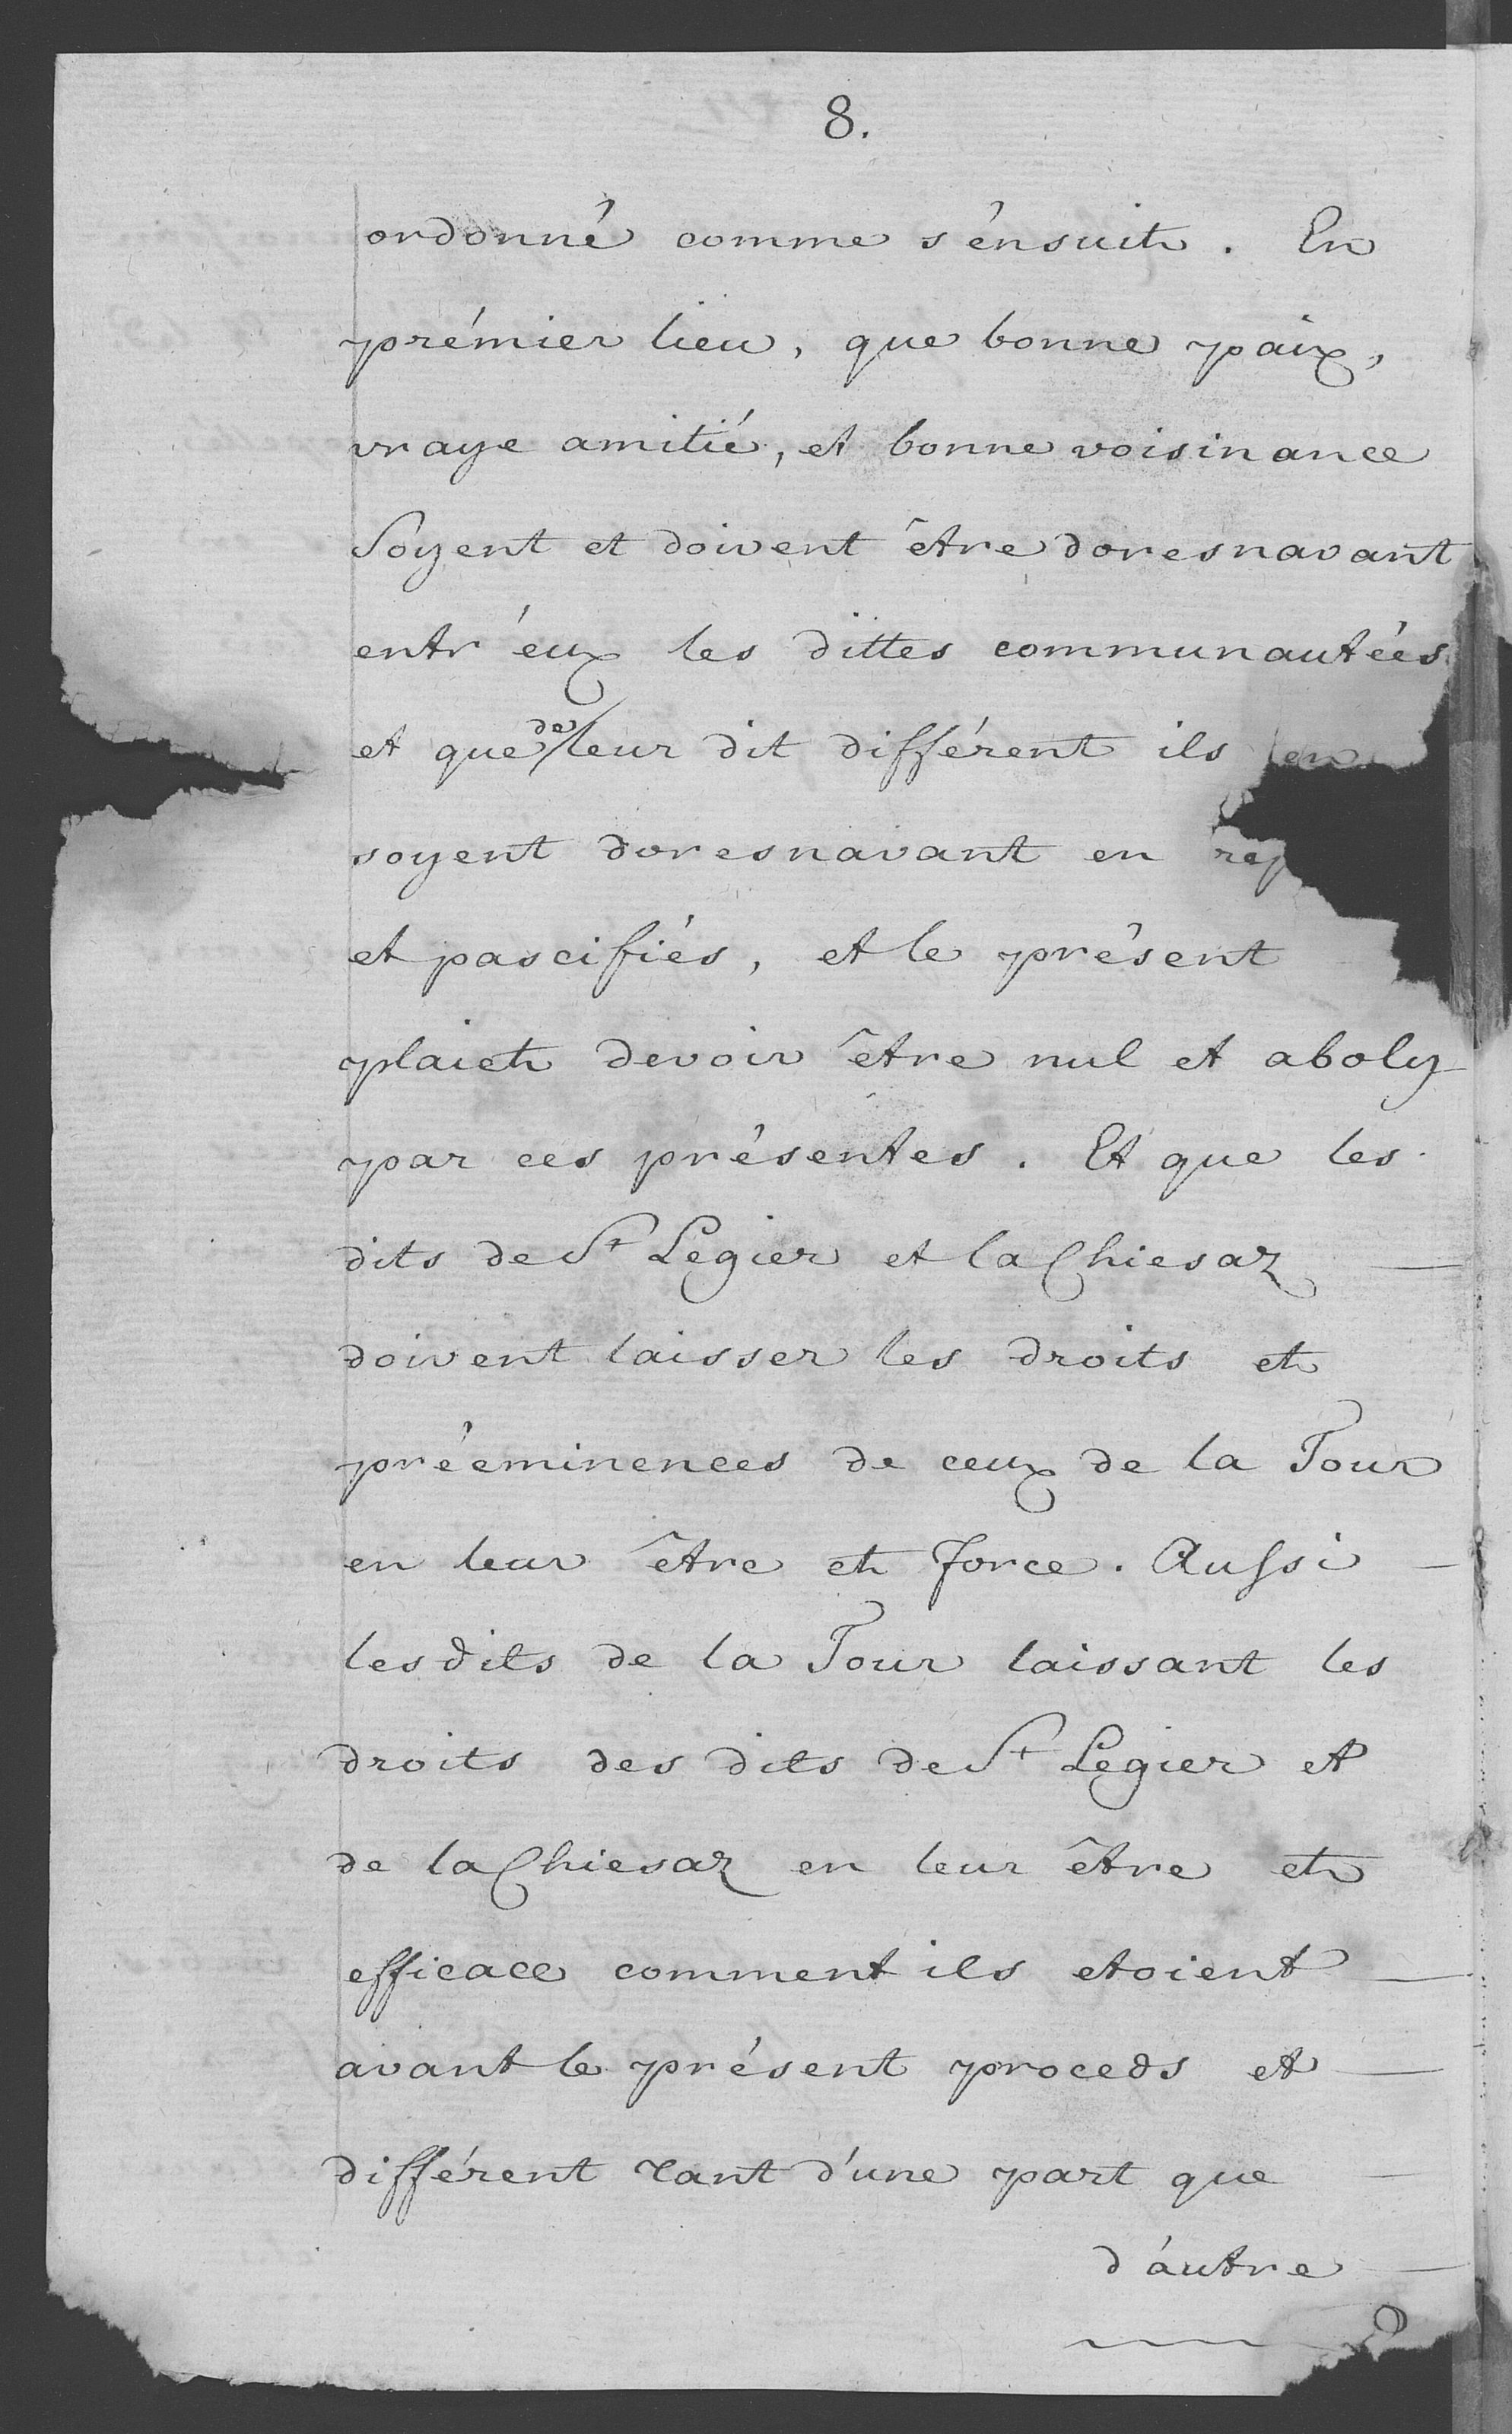 8.
ordonné comme s'énsuit. En
prémier lieu, que bonne paix,
vraye amitié, et bonne voisinance
Soyent et doivent être doresnavant
entr'éux les dittes communautées
et que de leur dit différent ils en
soyent doresnavant en rep
et pascifiés, et le présent
plaict devoir être nul et aboly
par ces présentes. Et que les
dits de St Legier et la Chiesaz
doivent laisser les droits et
prééminences de ceux de la Tour
en leur être et force. Aussi
lesdits de la Tour laissant les
droits des dits de St Legier et
de la Chiesaz en leur être et
efficace comment ils etoient
avant le présent proceds et
différent tant d'une part que
d'áutre